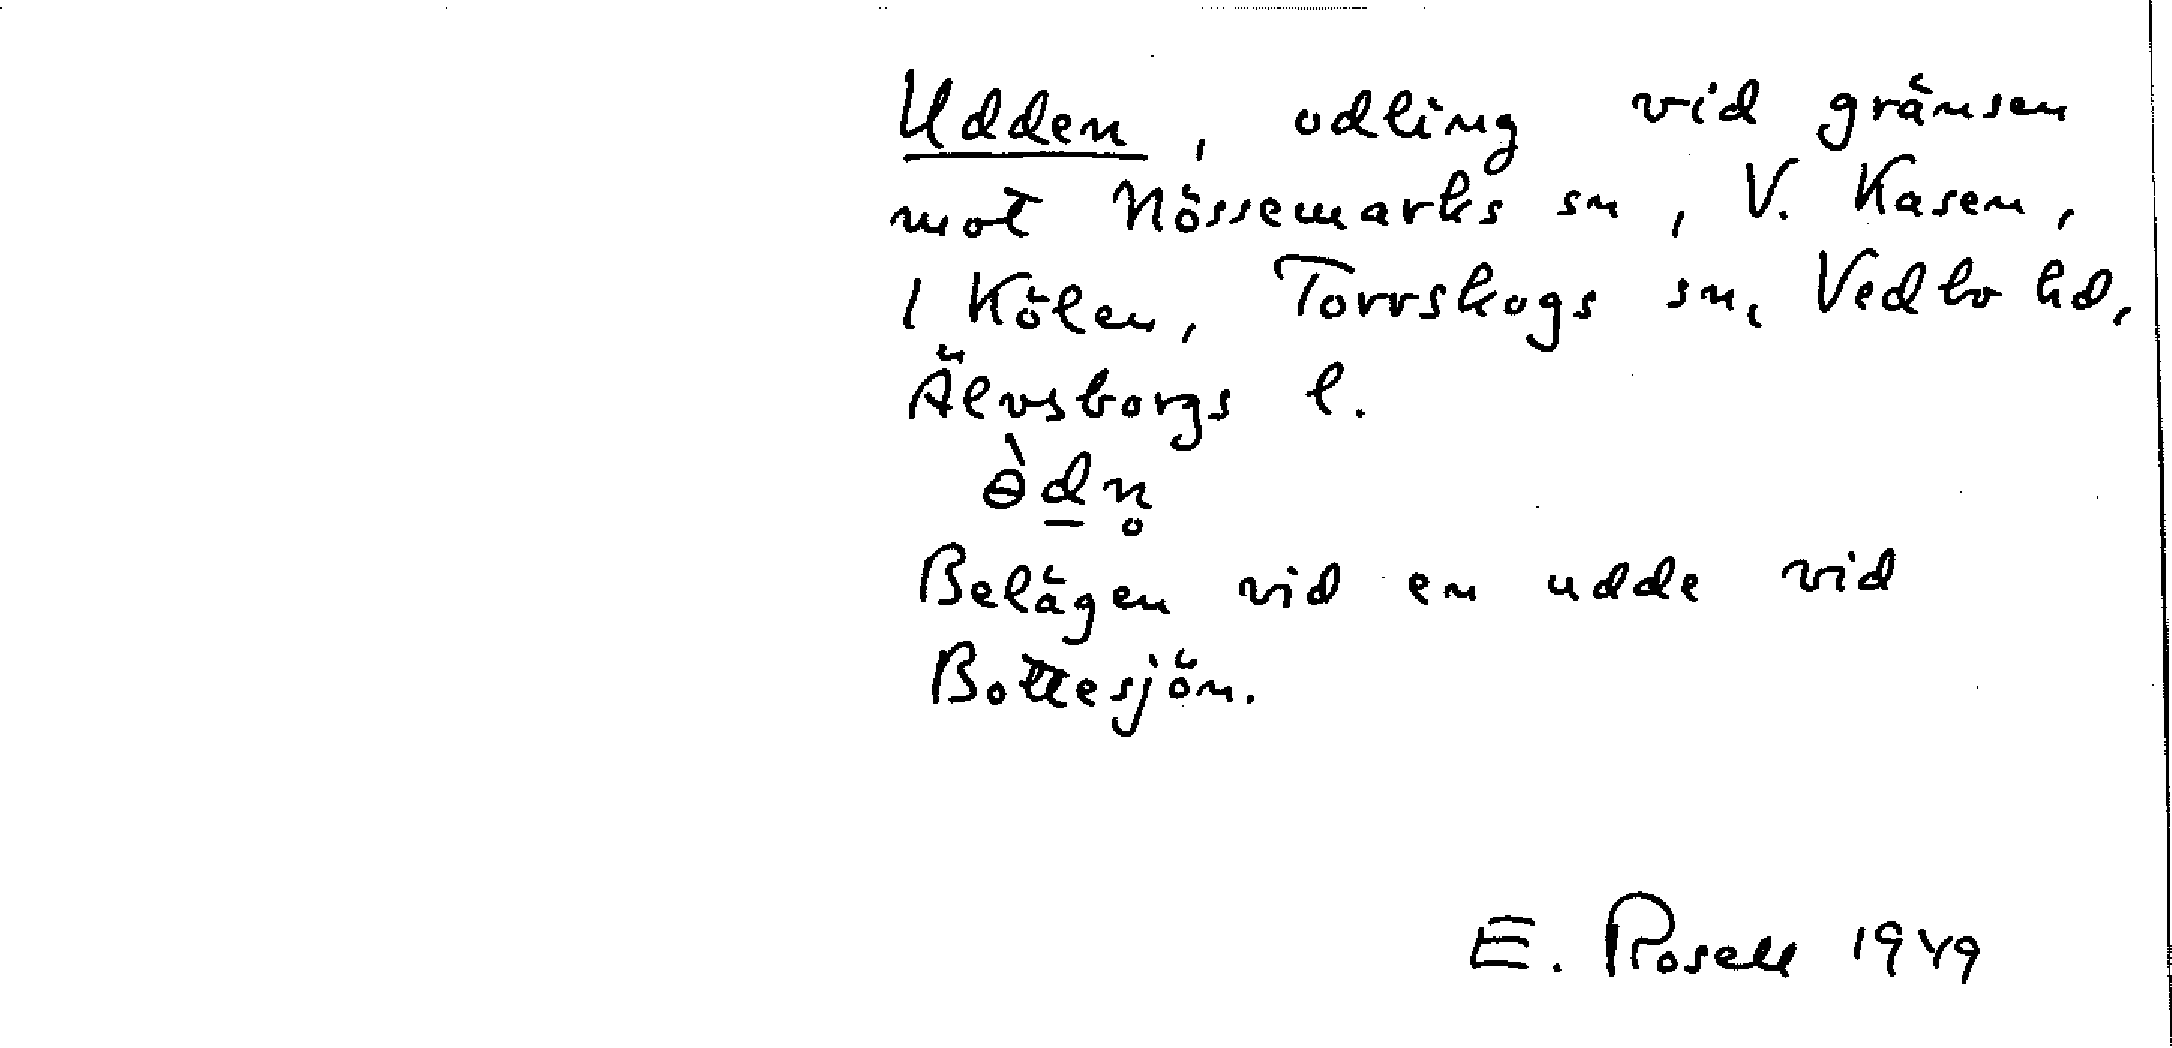 Udden, odling vid gränsen
mot Nössemarks sn, V. Kasen,
1 Kölen, Torrskogs sn, Vedbo hd,
Älvsborgs l.
ɵ̀d̲n̥
Belägen vid en udde vid
Bottesjön.
E. Rosell 1949